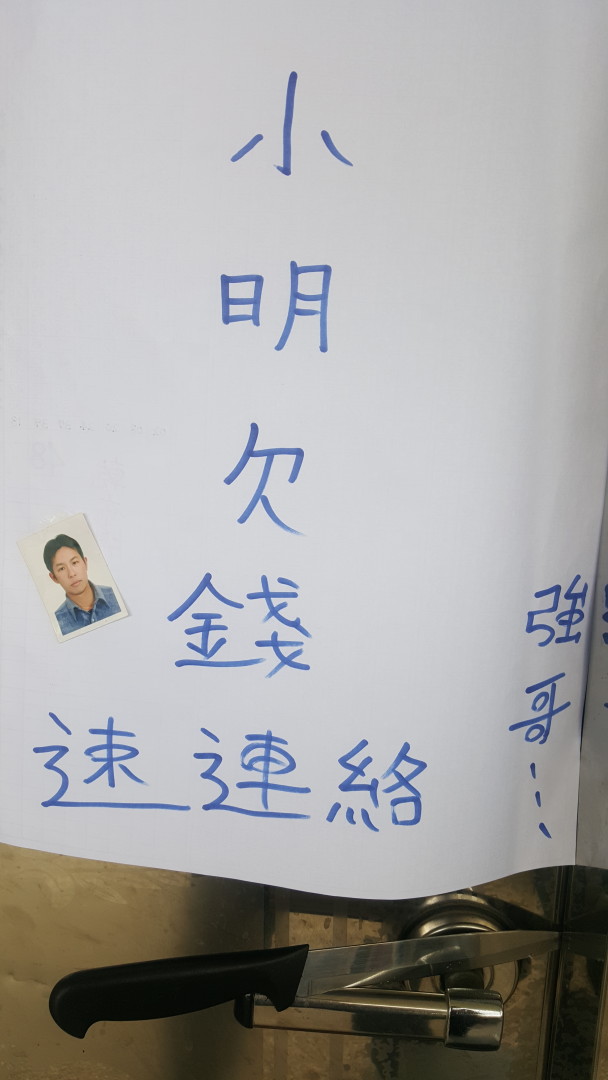 小
明
欠
錢
速連絡
強
哥...